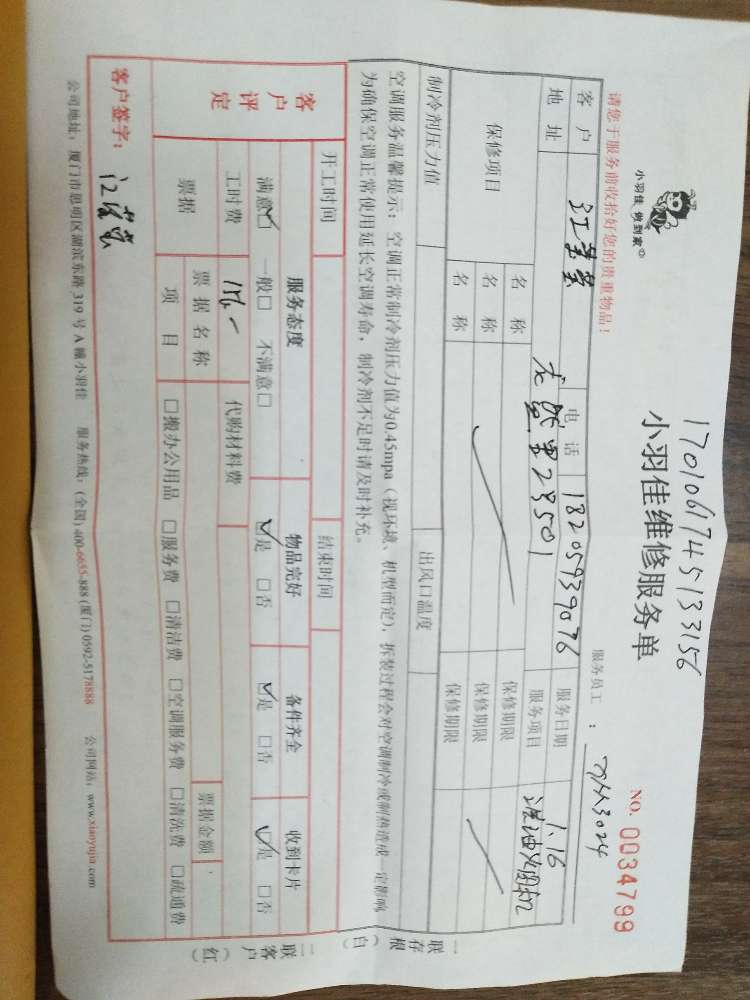 小羽佳 做到家
1701061745133156
小羽佳维修服务单
NO. 0034799
请您于服务前收拾好您的贵重物品！
服务员工：
客户 电话 18205939076 服务日期 1.16
地址 28501 服务项目 洗油烟机
保修项目 名称 保修期限
名称 保修期限
名称 保修期限
制冷剂压力值 出风口温度
空调服务温馨提示：空调正常制冷剂压力值为0.45mpa（视环境、机型而定），拆装过程会对空调制冷或制热造成一定影响
为确保空调正常使用延长空调寿命，制冷剂不足时请及时补充。
开工时间 结束时间
客户评定 服务态度 物品完好 备件齐全 收到卡片
满意☑ 一般□ 不满意□ ☑是 □否 ☑是 □否 ☑是 □否
工时费 代购材料费
票据 票据名称 票据金额
项目 □搬办公用品 □服务费 □清洁费 □空调服务费 □清洗费 □疏通费
客户签字：
公司地址：厦门市思明区湖滨东路319号A幢小羽佳 服务热线：(全国) 400-6655-888 (厦门) 0592-5178888 公司网站：www.xiaoyujia.com
一联存根（白）
二联客户（红）